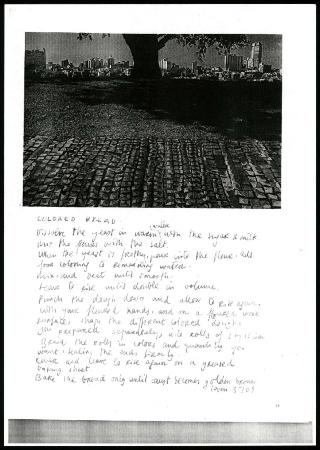 COLORED BREAD
water
Dissolve the yeast in warm with the sugar & milk
Mix the flour with the salt.
When the yeast is frothy, pour into the flour. Add
food coloring to remaining water.
Mix and beat until smooth.
Leave to rise until double in volume.
Punch the dough down and allow to rise again.
With your floured hands, and on a floured work
surface, shape the different colored doughs
you prepared separately, into rolls of
Braid the rolls in colors and quantity you
want, sealing the ends firmly.
Cover and leave to rise again on a greased
baking sheet
Bake the bread only until crust becomes golden brown